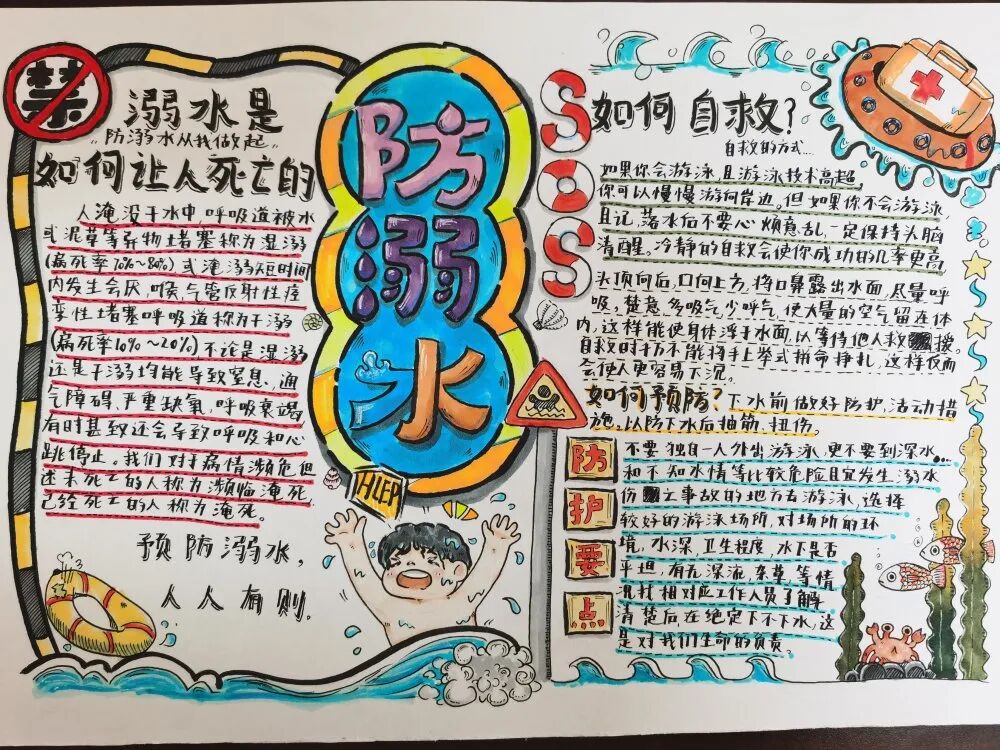 禁
溺水是
"防溺水从我做起"
如何让人死亡的
人淹没于水中呼吸道被水
或泥草等异物堵塞称为湿溺
(病死率70%~80%)或淹溺短时间
内发生会厌,喉,气管反射性痉
挛性堵塞呼吸道称为干溺
(病死率10%~20%)不论是湿溺
还是干溺均能导致窒息、通
气障碍、严重缺氧,呼吸衰竭
有时甚致还会导致呼吸和心
跳停止。我们对于病情濒危但
还未死亡的人称为濒临淹死,
已经死亡的人称为淹死。
预防溺水,
人人有则.
防
溺
水
HLEP
SOS
如何自救?
自救的方式...
如果你会游泳且游泳技术高超,
你可以慢慢游向岸边。但如果你不会游泳,
且记,落水后不要心烦意乱,一定保持头脑
清醒。冷静的自救会使你成功的几率更高,
头顶向后,口向上方,将口鼻露出水面,尽量呼
吸。楚意多吸气,少呼气,使大量的空气留连体
内,这样能使身体浮于水面,以等待他人救援。
自救时扐不能将手上举式拼命挣扎,这样仅而
气使人更容易下沉。
如何预防?下水前做好防护,活动措
施。以防下水后抽筋、扭伤。
防
护
要
点
不要独自一人外出游泳,更不要到深水...
和不知水情等比较危险且宜发生溺水
伤之事故的地方去游泳,选择
较好的游泳场所,对场所的环
境,水深,卫生程度,水下是否
平坦,有无深流,杂草等情
况找相对应工作人员了解
清楚后,在绝定下不下水,这
是对我们生命的负责。